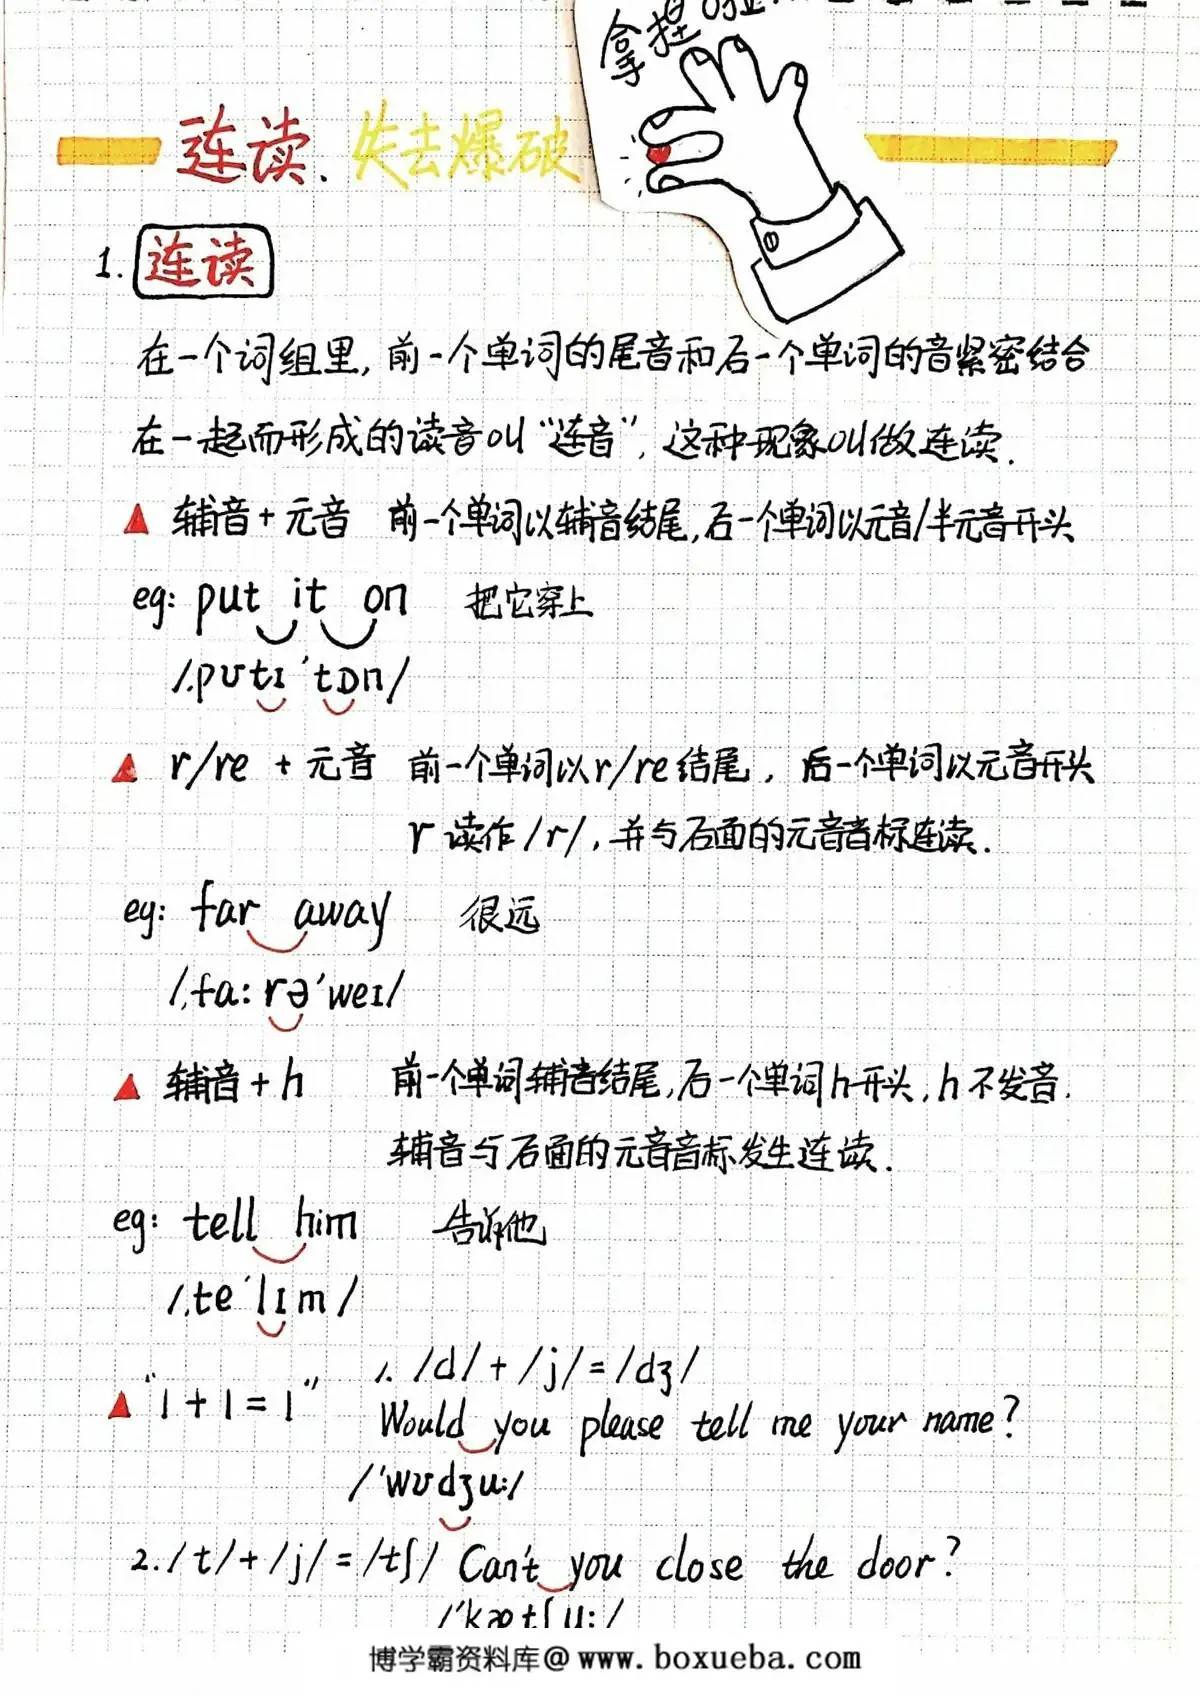 拿捏啦
连读. 失去爆破
1. 连读
在一个词组里, 前一个单词的尾音和后一个单词的音紧密结合
在一起而形成的读音叫“连音”, 这种现象叫做连读.
▲ 辅音+元音 前一个单词以辅音结尾, 后一个单词以元音/半元音开头
eg: put it on 把它穿上
/ˌpʊtɪˈtɒn/
▲ r/re + 元音 前一个单词以r/re结尾, 后一个单词以元音开头
r 读作/r/, 并与后面的元音音标连读.
eg: far away 很远
/ˌfa:rəˈweɪ/
▲ 辅音+h 前一个单词辅音结尾, 后一个单词h开头, h不发音.
辅音与后面的元音音标发生连读.
eg: tell him 告诉他
/ˌteˈlɪm/
▲ “1+1=1” 1. /d/+/j/=/dʒ/
Would you please tell me your name?
/ˈwʊdʒu:/
2. /t/+/j/=/tʃ/ Can't you close the door?
博学霸资料库@www.boxueba.com